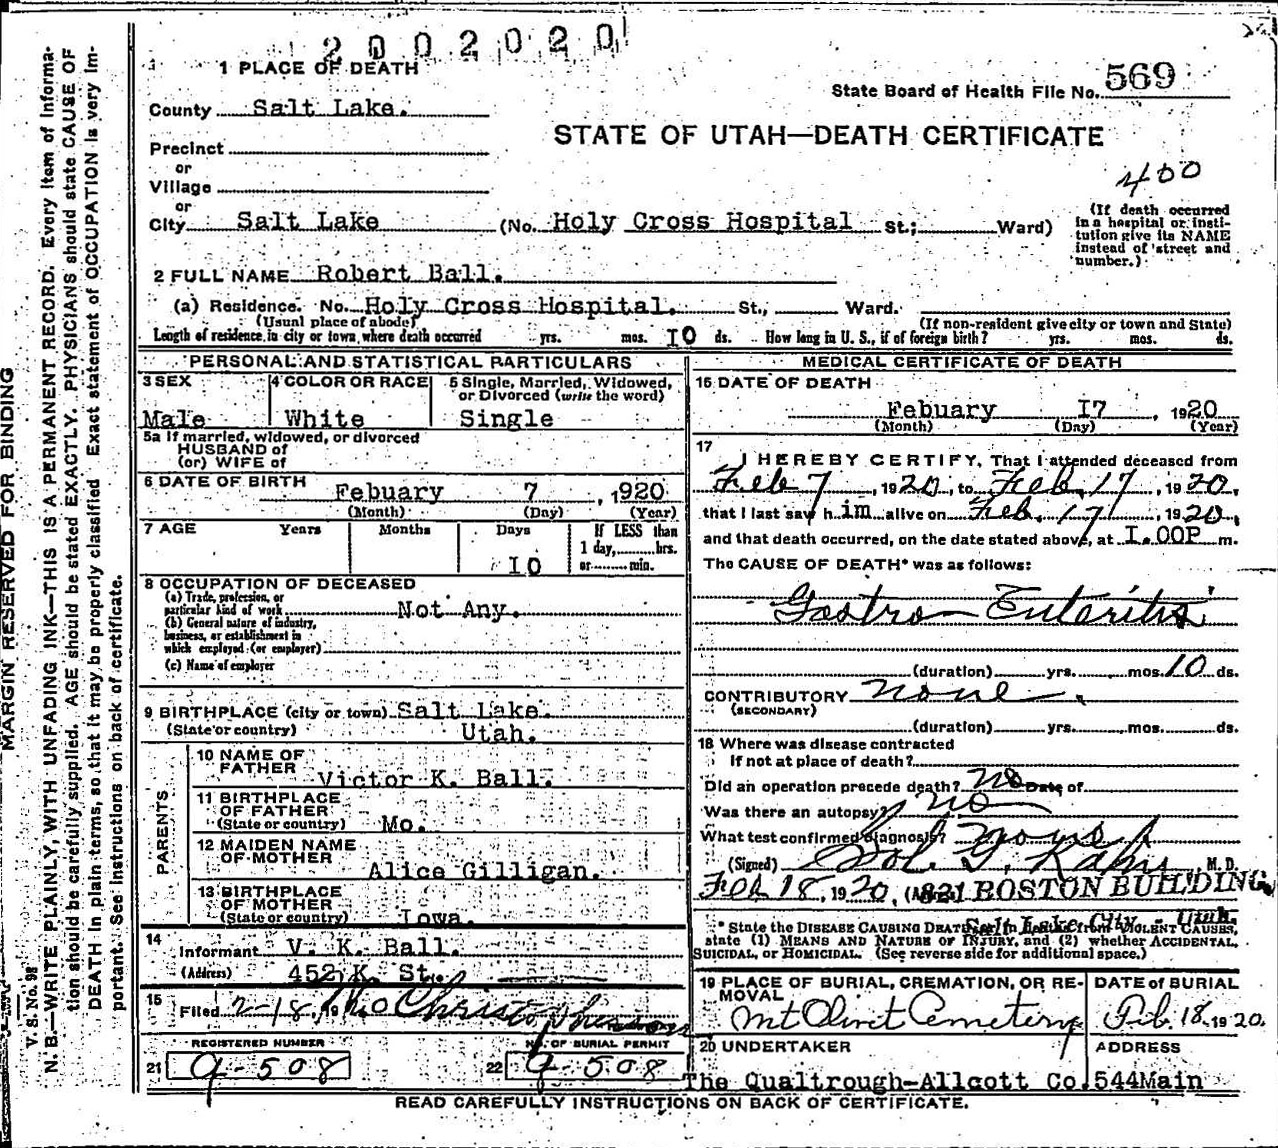 2002020
1 PLACE OF DEATH
State Board of Health File No. 569
County Salt Lake.
STATE OF UTAH—DEATH CERTIFICATE
Precinct
or
Village
400
or
City Salt Lake (No. Holy Cross Hospital St.; Ward)
(If death occurred in a hospital or institution give its NAME instead of street and number.)
2 FULL NAME Robert Ball.
(a) Residence. No. Holy Cross Hospital. St., Ward.
(Usual place of abode) (If non-resident give city or town and State)
Length of residence in city or town where death occurred yrs. mos. I0 ds. How long in U. S., if of foreign birth? yrs. mos. ds.
PERSONAL AND STATISTICAL PARTICULARS
3 SEX 4 COLOR OR RACE 5 Single, Married, Widowed,
or Divorced (write the word)
Male White Single
5a If married, widowed, or divorced
HUSBAND of
(or) WIFE of
6 DATE OF BIRTH
Febuary 7 , 1920
(Month) (Day) (Year)
7 AGE Years Months Days If LESS than
1 day, hrs.
I0 or min.
8 OCCUPATION OF DECEASED
(a) Trade, profession, or
particular kind of work Not Any.
(b) General nature of industry,
business, or establishment in
which employed (or employer)
(c) Name of employer
9 BIRTHPLACE (city or town) Salt Lake.
(State or country) Utah.
PARENTS
10 NAME OF
FATHER Victor K. Ball.
11 BIRTHPLACE
OF FATHER
(State or country) Mo.
12 MAIDEN NAME
OF MOTHER
Alice Gilligan.
13 BIRTHPLACE
OF MOTHER
(State or country) Iowa.
14
Informant V. K. Ball.
(Address) 452 K. St.
15
Filed 2-18, 19
REGISTERED NUMBER NO. OF BURIAL PERMIT
21 9-508 22 9-508
MEDICAL CERTIFICATE OF DEATH
16 DATE OF DEATH
Febuary I7 , 1920
(Month) (Day) (Year)
17
I HEREBY CERTIFY, That I attended deceased from
Feb 7, 1920, to Feb. 17, 1920,
that I last saw him alive on Feb. 17, 1920,
and that death occurred, on the date stated above, at I.00P m.
The CAUSE OF DEATH* was as follows:
Gastro-Enteritis
(duration) yrs. mos. 10 ds.
CONTRIBUTORY none.
(SECONDARY)
(duration) yrs. mos. ds.
18 Where was disease contracted
If not at place of death?
Did an operation precede death? no Date of
Was there an autopsy? no
What test confirmed diagnosis?
(Signed) Sol G. Kahn M. D.
Feb 18, 1920, (A 821 BOSTON BUILDING
Salt Lake City - Utah.
* State the DISEASE CAUSING DEATH, or in deaths from VIOLENT CAUSES,
state (1) MEANS AND NATURE OF INJURY, and (2) whether ACCIDENTAL,
SUICIDAL, or HOMICIDAL. (See reverse side for additional space.)
19 PLACE OF BURIAL, CREMATION, OR RE-
MOVAL
Mt Olivet Cemetery
DATE of BURIAL
Feb. 18, 1920.
20 UNDERTAKER ADDRESS
The Qualtrough-Allcott Co. 544Main
READ CAREFULLY INSTRUCTIONS ON BACK OF CERTIFICATE.
MARGIN RESERVED FOR BINDING
V. S. No. 98
N. B.—WRITE PLAINLY, WITH UNFADING INK—THIS IS A PERMANENT RECORD. Every item of informa-
tion should be carefully supplied. AGE should be stated EXACTLY. PHYSICIANS should state CAUSE OF
DEATH in plain terms, so that it may be properly classified. Exact statement of OCCUPATION is very im-
portant. See instructions on back of certificate.